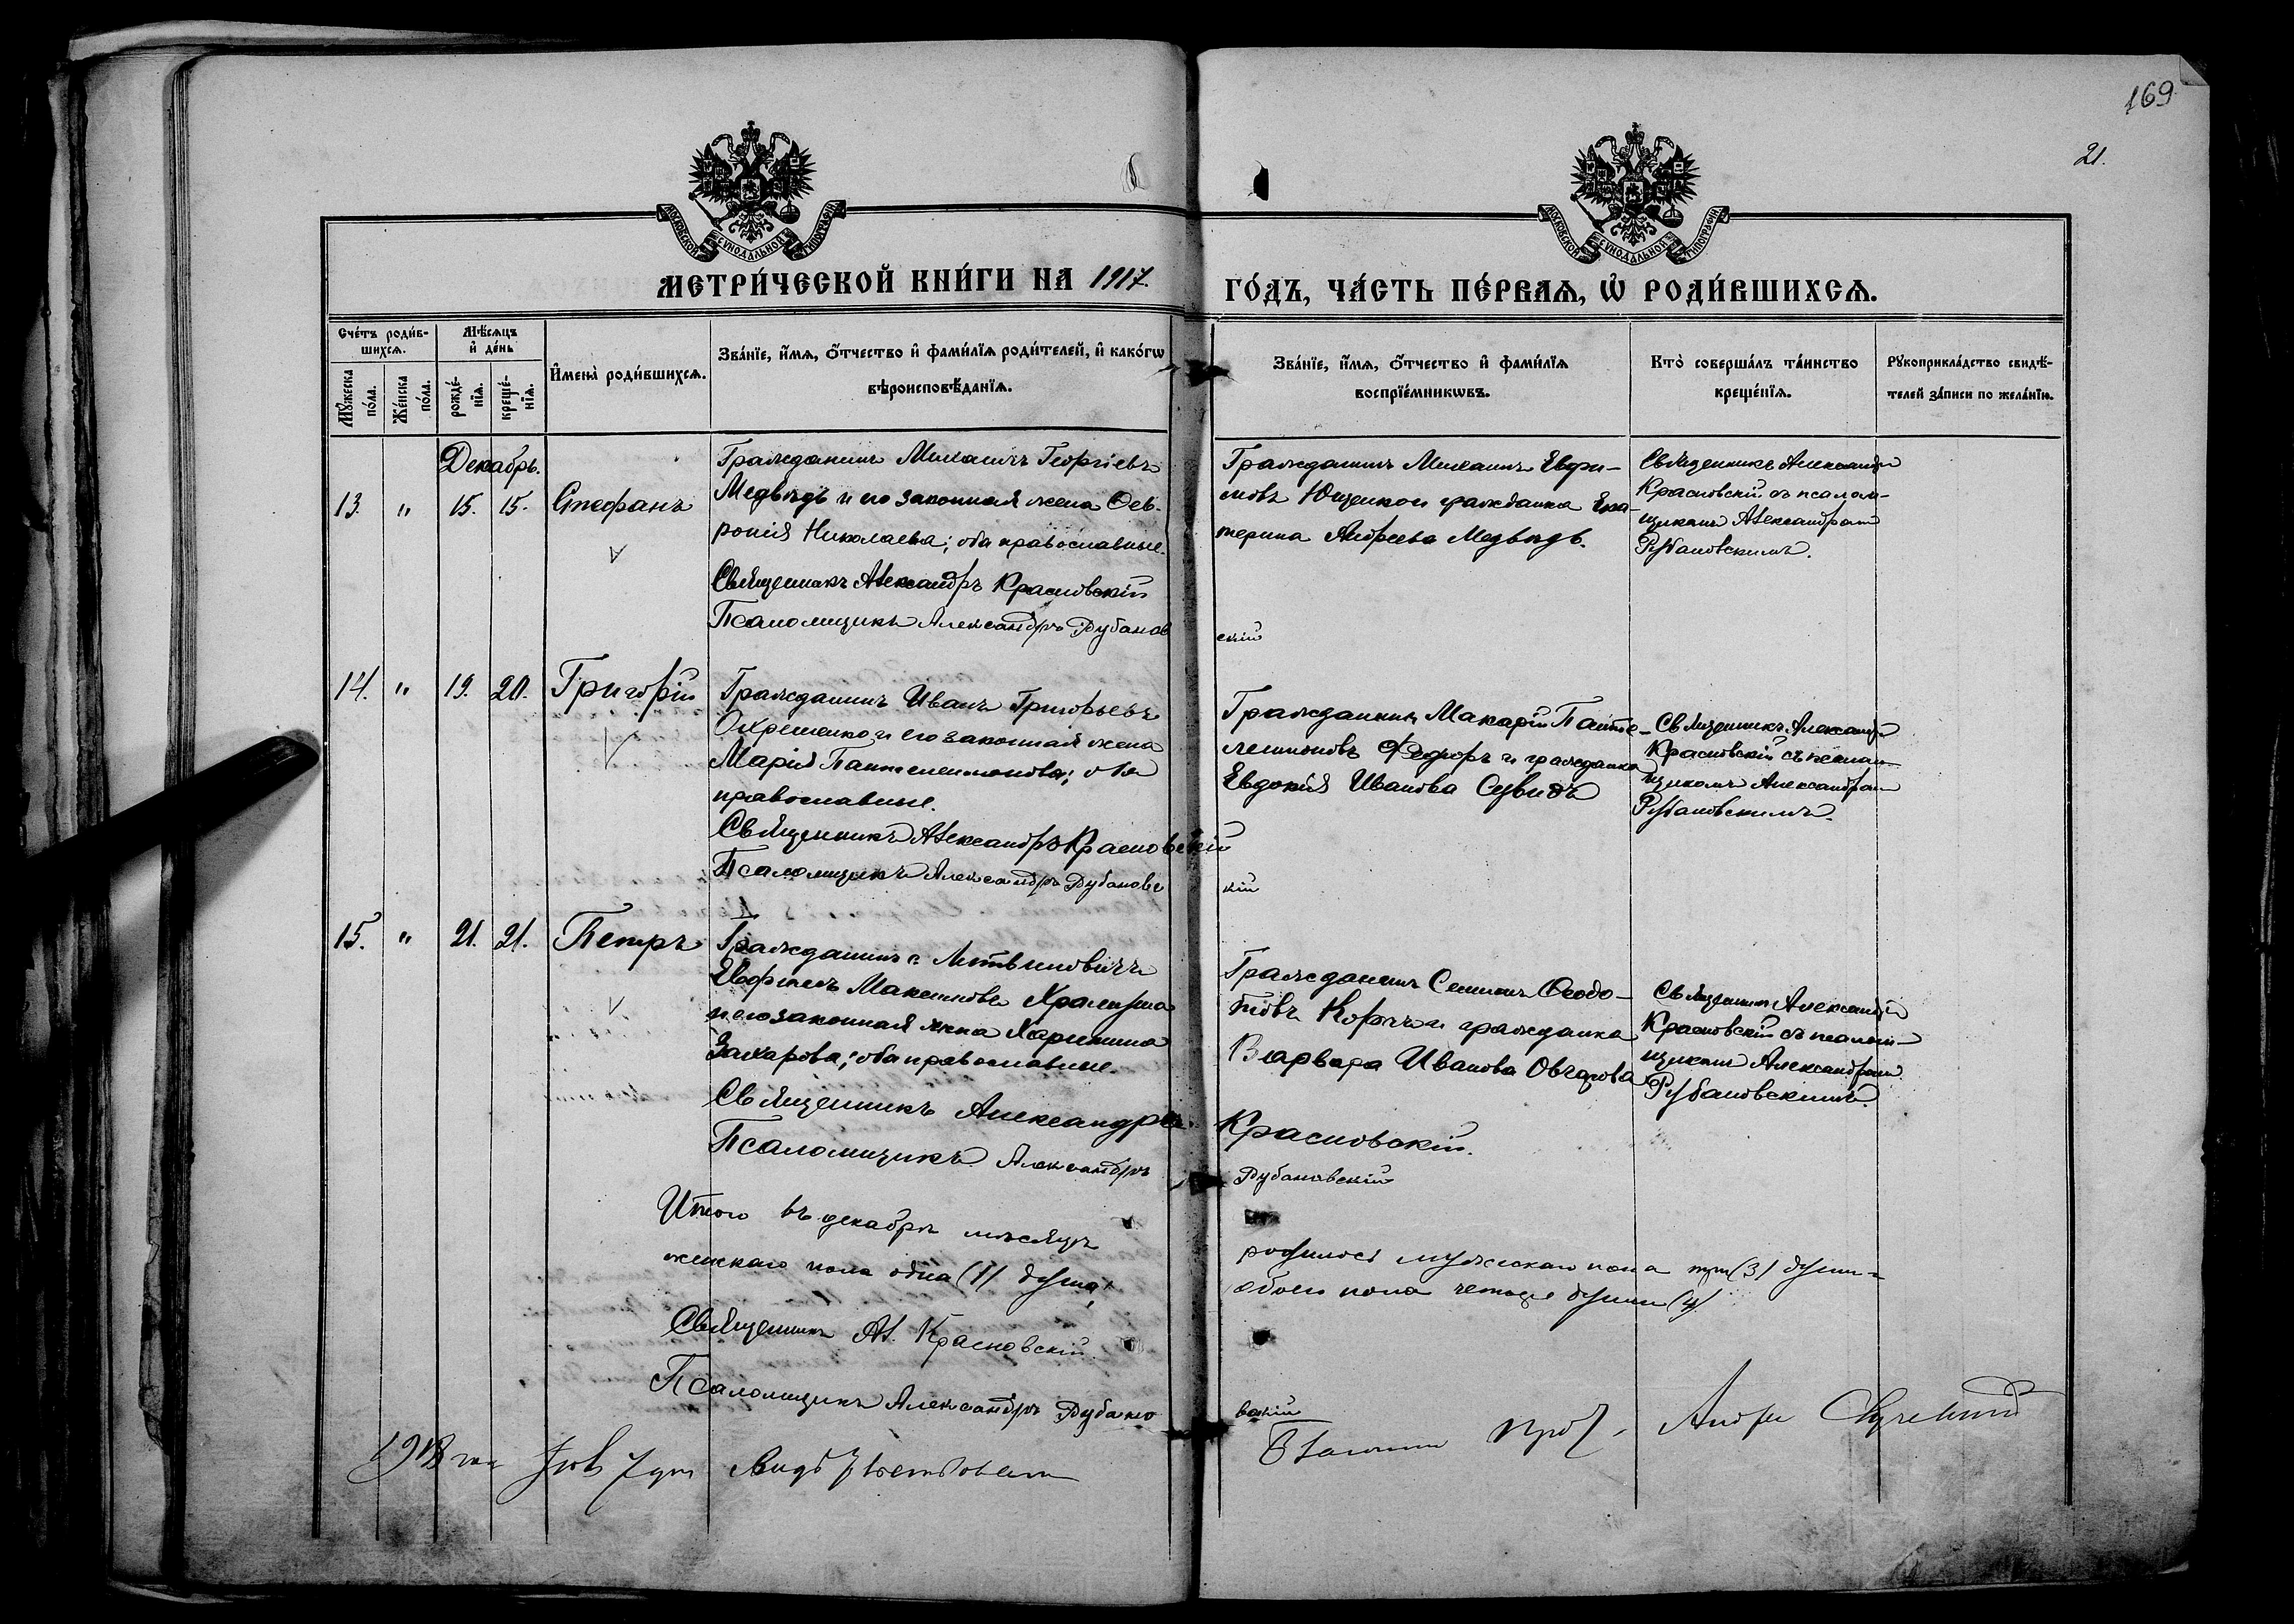 169
21.
МОСКОВСКОЙ СѴНОДАЛЬНОЙ ТИПОГРАФІИ
МОСКОВСКОЙ СѴНОДАЛЬНОЙ ТИПОГРАФІИ
МЕТРИ́ЧЕСКОЙ КНИ́ГИ НА 1917.
ГО́ДЪ, ЧА́СТЬ ПЕ́РВАѦ, Ѡ҆ РОДИ́ВШИХСѦ.
Сче́тъ роди́в-
шихсѧ.
Мѣ́сѧцъ
и҆ де́нь
Мꙋ́жеска
по́ла.
Же́нска
по́ла.
рожде́-
нїѧ.
креще́-
нїѧ.
И҆мена̀ роди́вшихсѧ.
Зва́нїе, и҆́мѧ, ѻ҆́тчество и҆ фами́лїѧ роди́телей, и҆ како́гѡ
вѣроисповѣ́данїѧ.
Зва́нїе, и҆́мѧ, ѻ҆́тчество и҆ фами́лїѧ
воспрїе́мникѡвъ.
Кто̀ соверша́лъ та́инство
креще́нїѧ.
Рꙋкоприкла́дство свидѣ́-
телей за́писи по жела́нїю.
Декабрь.
13. " 15. 15. Стефанъ
Гражданинъ Михаилъ Георгіевъ
Медвѣдь и его законная жена Фев-
ронія Николаева; оба православные.
Священникъ Александръ Красновскій
Псаломщикъ Александръ Рубанов
скій
Гражданинъ Михаилъ Евфи-
мовъ Ющенко и гражданка Ека-
терина Андреева Медвѣдь.
Священникъ Александръ
Красновскій съ псалом-
щикомъ Александромъ
Рубановскимъ.
14. " 19. 20. Григорій
Гражданинъ Иванъ Григорьевъ
и его законная жена
Марія Пантелеимонова; оба
православные.
Священникъ Александръ Красновскій
Псаломщикъ Александръ Рубановс
кій
Гражданинъ Макарій Панте-
леимоновъ и гражданка
Евдокія Иванова
Священникъ Александръ
Красновскій съ псалом-
щикомъ Александромъ
Рубановскимъ.
15. " 21. 21. Петръ
Гражданинъ
Максимовъ
и его законная жена Харитина
Захарова; оба православные.
Священникъ Александръ
Красновскій.
Псаломщикъ Александръ
Рубановскій
Гражданинъ Семенъ Феодо-
товъ и гражданка
Варвара Иванова Овчарова
Священникъ Александръ
Красновскій съ псалом-
щикомъ Александромъ
Рубановскимъ.
Итого въ декабрѣ мѣсяцѣ
родилось мужскаго пола три (3) души
женскаго пола одна (1) душа,
обоего пола четыре души (4)
Священникъ Ал. Красновскій
Псаломщикъ Александръ Рубано
вскій
1918 года